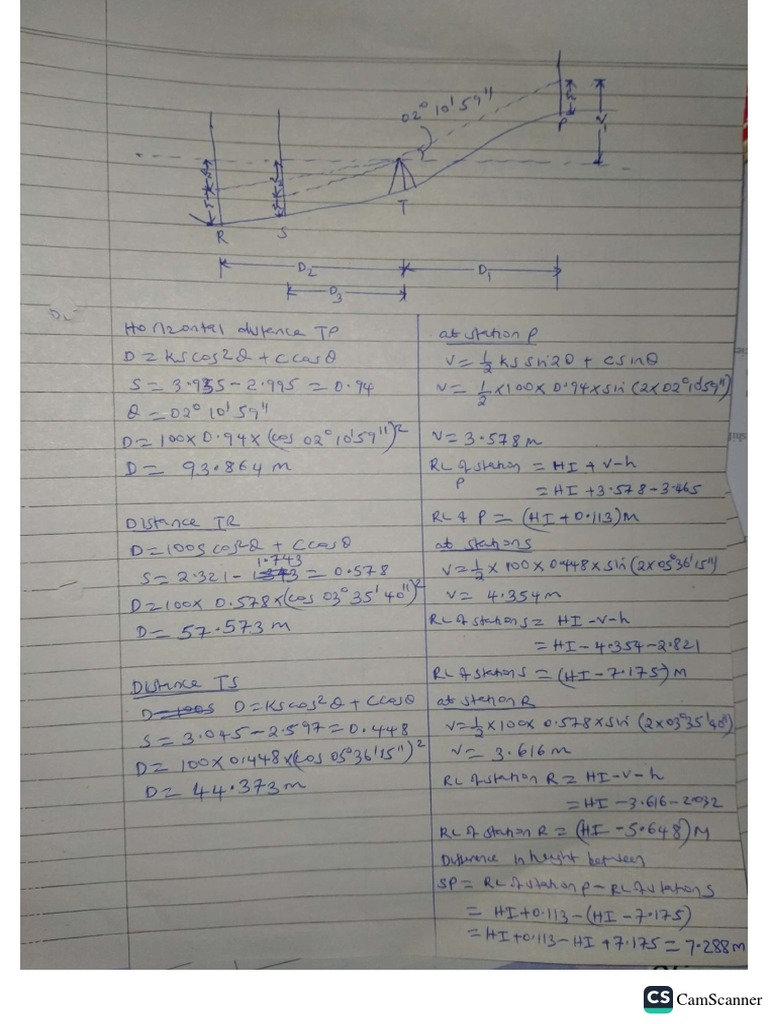 02° 10' 59"
P
V
T
R
S
D2
D1
D3
Horizontal distance TP
D = KScos²θ + Ccosθ
S = 3.935 - 2.995 = 0.94
θ = 02° 10' 59"
D = 100 x 0.94 x (cos 02° 10' 59")²
D = 93.864 m
Distance TR
D = 100S cos²θ + Ccosθ
1.743
S = 2.321 - = 0.578
D = 100 x 0.578 x (cos 03° 35' 40")²
D = 57.573 m
Distance TS
D = 100S D = KScos²θ + Ccosθ
S = 3.045 - 2.597 = 0.448
D = 100 x 0.448 x (cos 05° 36' 15")²
D = 44.373 m
at station P
V = 1/2 KS sin2θ + Csinθ
V = 1/2 x 100 x 0.94 x sin (2 x 02° 10' 59")
V = 3.578 m
RL of station = HI + V - h
P
= HI + 3.578 - 3.465
RL of P = (HI + 0.113) m
at station S
V = 1/2 x 100 x 0.448 x sin (2 x 05° 36' 15")
V = 4.354 m
RL of station S = HI - V - h
= HI - 4.354 - 2.821
RL of station S = (HI - 7.175) m
at station R
V = 1/2 x 100 x 0.578 x sin (2 x 03° 35' 40")
V = 3.616 m
RL of station R = HI - V - h
= HI - 3.616 - 2.032
RL of station R = (HI - 5.648) M
Difference in height between
SP = RL of station P - RL of station S
= HI + 0.113 - (HI - 7.175)
= HI + 0.113 - HI + 7.175 = 7.288 m
CS CamScanner